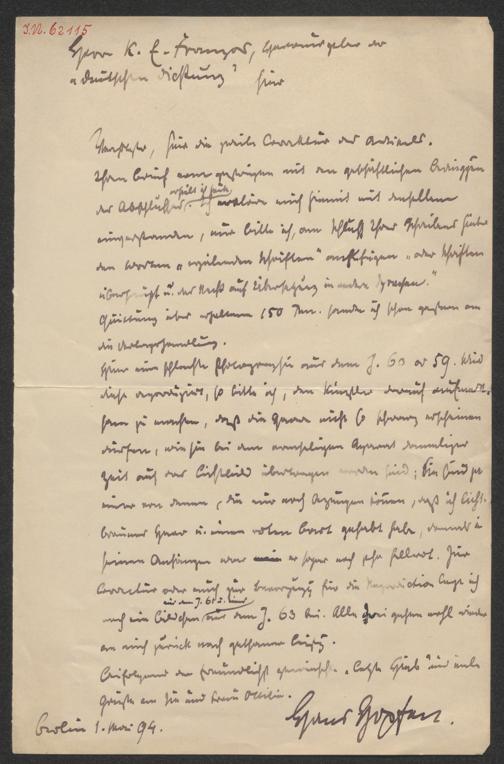 I.N. 62115
Herrn K. E. Franzos, Herausgeber der
"Deutschen Dichtung" hier
Verehrter, hier die zweite Correktur des Artikels.
Ihren Brief vom gestrigen mit den geschäftlichen Bedingungen
des Abschlusses erhielt ich heute, erkläre mich hiemit mit denselben
einverstanden, nur bitte ich, am Schluß Ihres Schreibens hinter
den Worten "erzählenden Schriften" anfügen "oder Schriften
überhaupt u. das Recht auf Übersetzung in andere Sprachen."
Quittung über erhaltene 150 Mk. sandte ich schon gestern an
die Verlagshandlung.
Hier eine schlechte Photographie aus dem J. 60 or 59. Wird
diese reproduzirt, so bitte ich, den Künstler darauf aufmerk-
sam zu machen, daß die Haare nicht so schwarz erscheinen
dürfen, wie sie bei dem armseligen Apparat damaliger
Zeit auf das Lichtbild übertragen worden sind; Sie sind ja
einer von denen, die mir noch bezeugen können, daß ich licht-
braunes Haar u. einen roten Bart gehabt habe, damals in
seinen Anfängen war er sogar noch sehr hellrot. Zur
Correctur oder auch zur Bevorzugung für die Reproduction lege ich
noch ein Bildchen aus dem J. 63 bei. Alle drei gehen wohl wieder
an mich zurück nach gethaner
Beifolgend der freundlichst gewünschte "letzte Hieb" und viele
Grüße an Sie und Frau Ottilie.
Hans Hopfen.
Berlin 1. Mai 94.